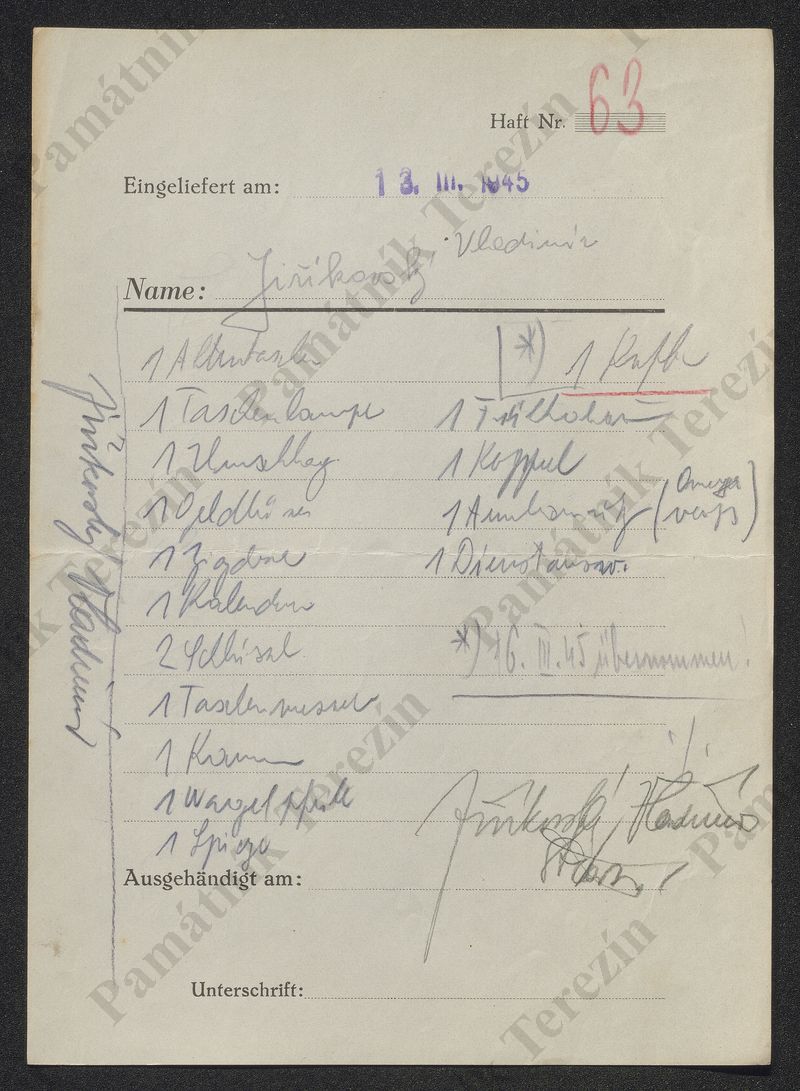 Haft Nr. 63
Eingeliefert am: 13. III. 1945
Name: Jiříkovský Vladimír
1 Aktentasche
*) 1 Koffer
1 Taschenlampe
1
1 Umschlag
1 Koppel
1 Geldbörse
1 Armbanduhr (Omega
1
1 Dienstausw.
1 Kalender
2 Schlüssel
*) 16. III. 45 übernommen!
1 Taschenmesser
1 Kamm
1 Nagelpfeile
1 Spiegel
Jiříkovský Vladimír
Jiříkovský Vladimír
Ausgehändigt am:
Unterschrift:
Památník Terezín